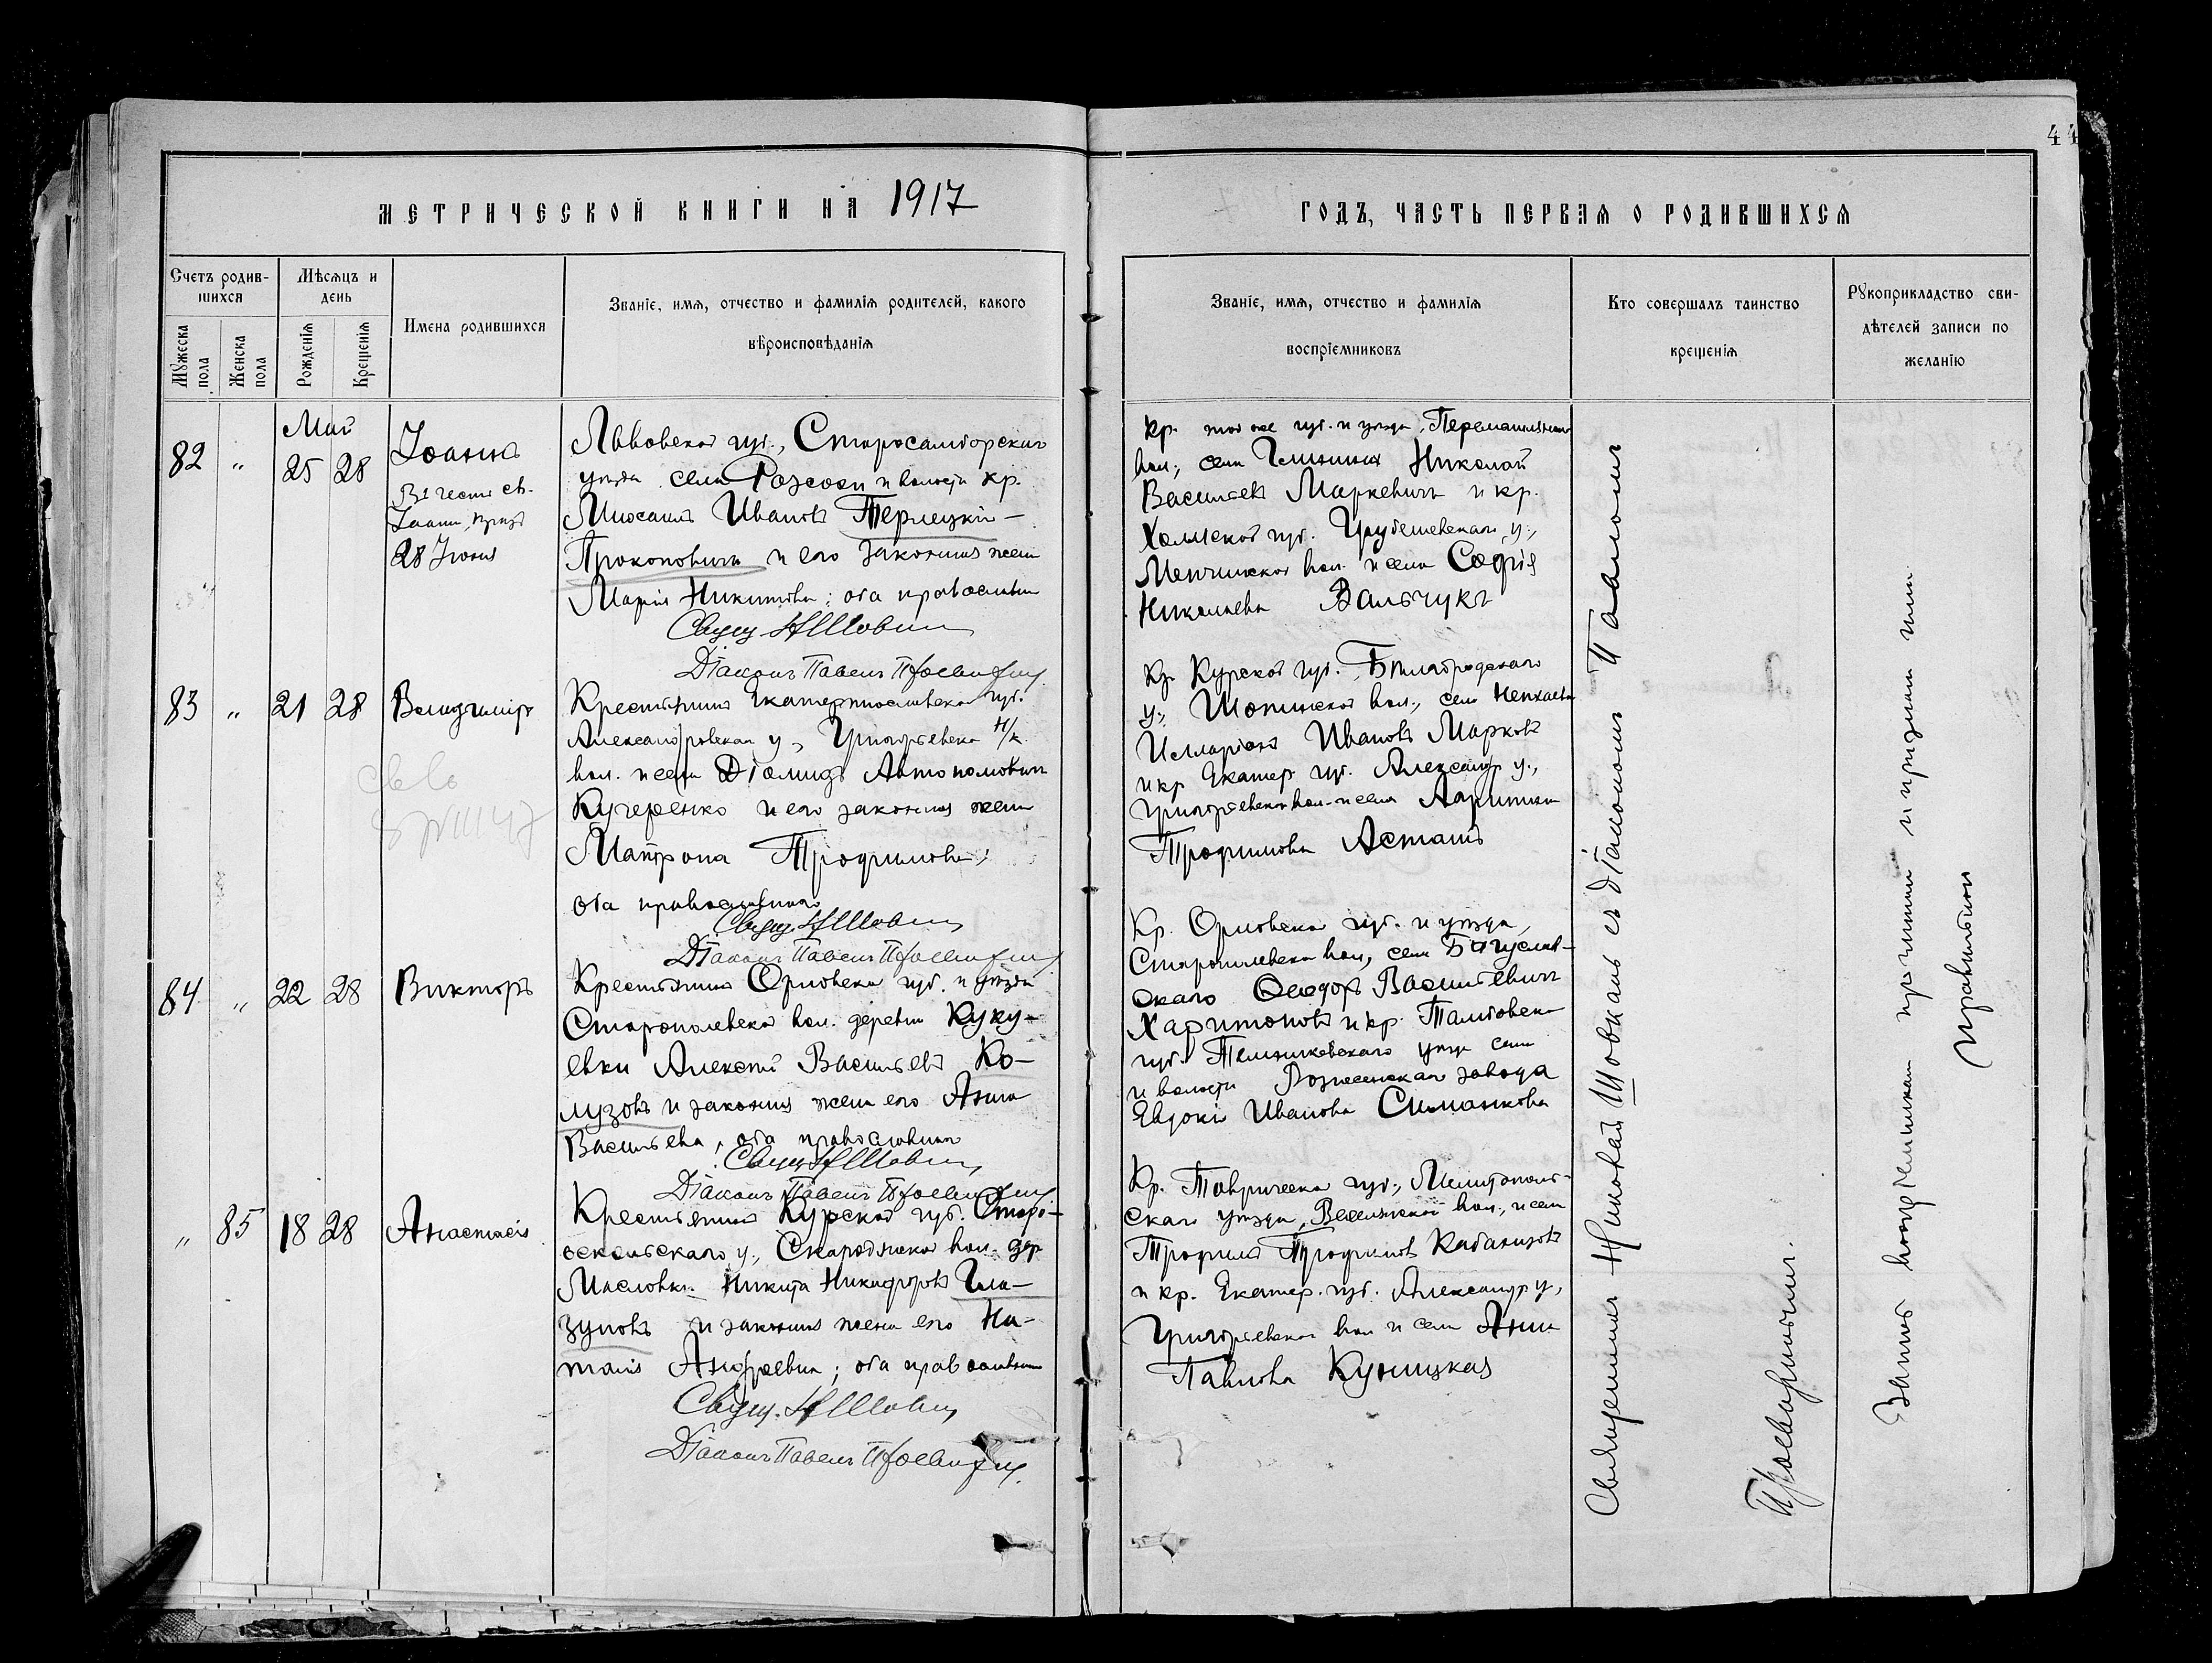 44
МЕТРИЧЕСКОЙ КНИГИ НА 1917
ГОДЪ, ЧАСТЬ ПЕРВАЯ О РОДИВШИХСЯ
Счетъ родив-
шихся
Мужеска пола
Женска пола
Мѣсяцъ и
день
Рожденія
Крещенія
Имена родившихся
Званіе, имя, отчество и фамилія родителей, какого
вѣроисповѣданія
Званіе, имя, отчество и фамилія
воспріемниковъ
Кто совершалъ таинство
крещенія
Рукоприкладство сви-
дѣтелей записи по
желанію
Май
82 „ 25 28
Іоаннъ
Въ честь св.
28 Іюня
Львовской губ., Старосамборскаго
уѣзда села и волости кр.
Михаилъ Ивановъ Терлецкій-
Прокоповичъ и его законная жена
Марія Никитова; оба православны
Свящ. Н Шовинъ
Діаконъ Павелъ
Кр. той же губ. и уѣзда,
вол., села Николай
Васильевъ Маркевичъ и кр.
Холмской губ. Грубешевскаго у.,
вол. и села Софія
Николаева Вальчукъ
83 „ 21 28
Владиміръ
Крестьянинъ Екатеринославской губ.
Александровскаго у., Григорьевской Н/к
вол. и села Діомидъ Автономовичъ
Кучеренко и его законная жена
Матрона Трофимова;
оба православнаго
Свящ. Н Шовинъ
Діаконъ Павелъ
Кр. Курской губ. Бѣлгородскаго
у., Шопинской вол., села
Илларіонъ Ивановъ Марковъ
и кр. Екатер. губ. Александр у.,
Григорьевской вол. и села
Трофимова Асташъ
84 „ 22 28
Викторъ
Крестьянинъ Орловской губ. и уѣзда
вол. деревни Куку-
евки Алексѣй Васильевъ Ко-
лузовъ и законная жена его Анна
Васильева, оба православнаго
Свящ. Н Шовинъ
Діаконъ Павелъ
Кр. Орловской губ. и уѣзда,
вол., села Богуслав-
скаго Ѳеодоръ Васильевичъ
Харитоновъ и кр. Тамбовской
губ. Темниковскаго уѣзда села
и волости Вознесенскаго завода
Евдокія Иванова Симанкова
„ 85 18 28
Анастасія
Крестьянинъ Курской губ. Старо-
оскольскаго у., Скороднской вол. дер.
Масловки Никита Никифоровъ Гла-
зуновъ и законная жена его На-
талія Андреевна; оба православнаго
Свящ. Н Шовинъ
Діаконъ Павелъ
Кр. Таврической губ., Мелитополь-
скаго уѣзда, вол., и села
Трофимъ Трофимовъ Кабанцовъ
и кр. Екатер. губ. Александр у.,
Григорьевской вол. и села Анна
Павлова Куницкая
Священникъ Николай Шовинъ съ діакономъ Павломъ